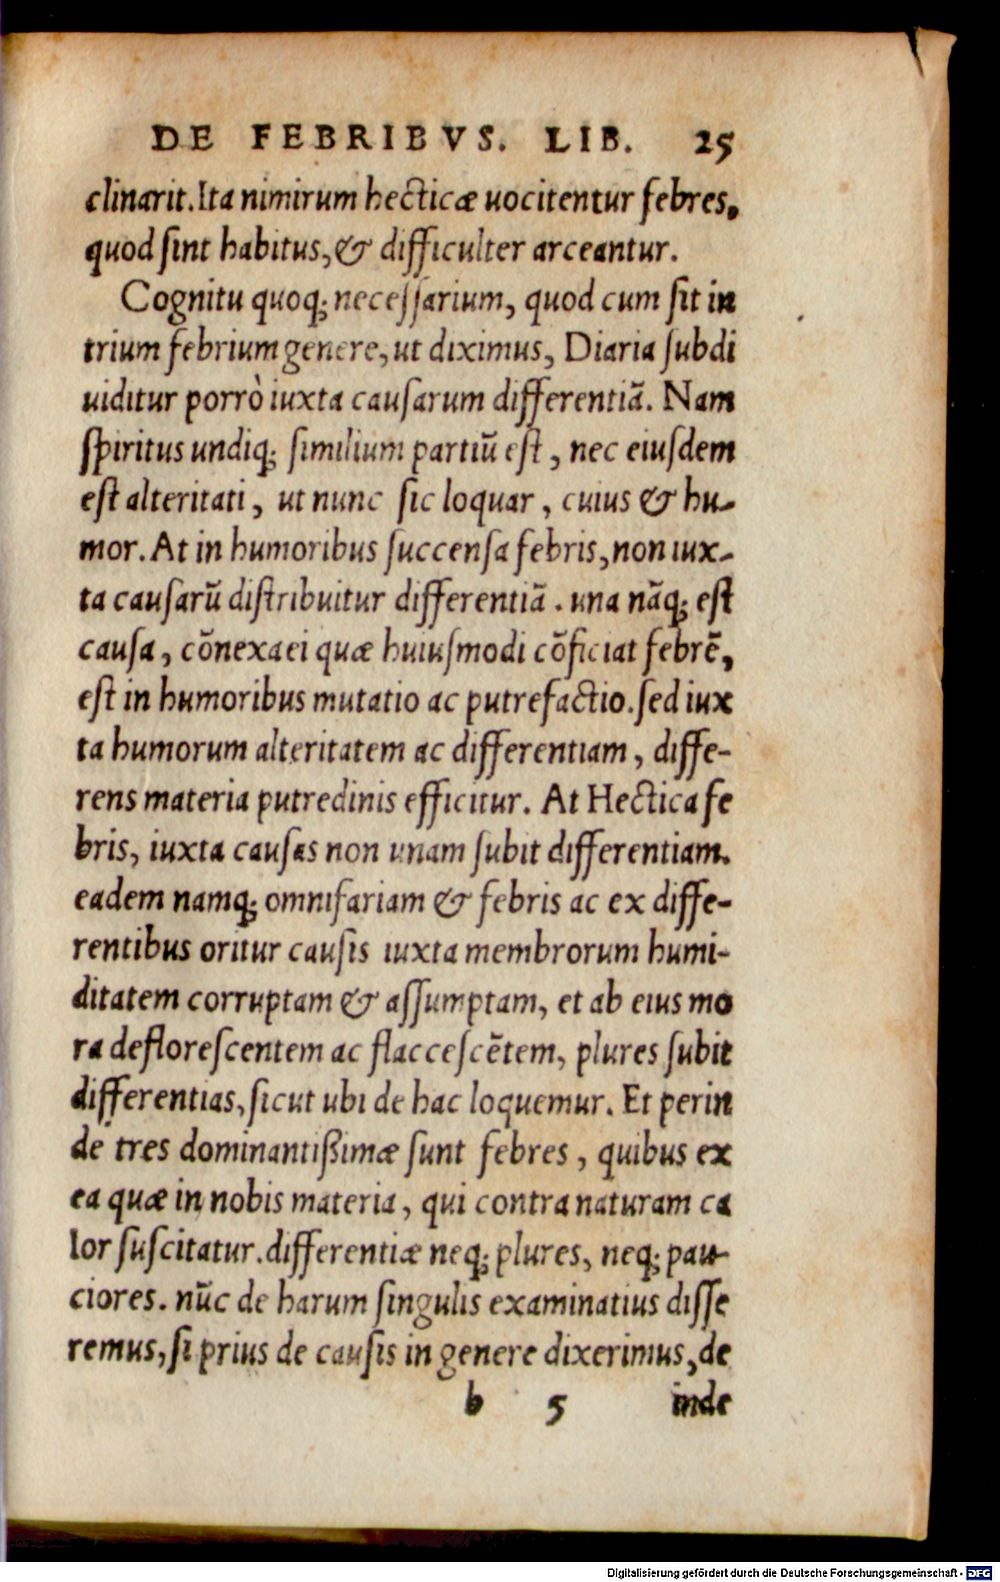 DE FEBRIBVS. LIB. 25
clinarit. Ita nimirum hecticæ uocitentur febres,
quod sint habitus, & difficulter arceantur.
Cognitu quoq; necessarium, quod cum sit in
trium febrium genere, ut diximus, Diaria subdi
uiditur porrò iuxta causarum differentiã. Nam
spiritus undiq; similium partiũ est, nec eiusdem
est alteritati, ut nunc sic loquar, cuius & hu-
mor. At in humoribus succensa febris, non iux-
ta causarũ distribuitur differentiã. una nãq; est
causa, cõnexa ei quæ huiusmodi cõficiat febrẽ,
est in humoribus mutatio ac putrefactio. sed iux
ta humorum alteritatem ac differentiam, diffe-
rens materia putredinis efficitur. At Hectica fe
bris, iuxta causas non unam subit differentiam.
eadem namq; omnifariam & febris ac ex diffe-
rentibus oritur causis iuxta membrorum humi-
ditatem corruptam & assumptam, et ab eius mo
ra deflorescentem ac flaccescẽtem, plures subit
differentias, sicut ubi de hac loquemur. Et perin
de tres dominantißimæ sunt febres, quibus ex
ea quæ in nobis materia, qui contra naturam ca
lor suscitatur. differentiæ neq; plures, neq; pau-
ciores. nũc de harum singulis examinatius disse
remus, si prius de causis in genere dixerimus, de
b 5 inde
Digitalisierung gefördert durch die Deutsche Forschungsgemeinschaft - DFG